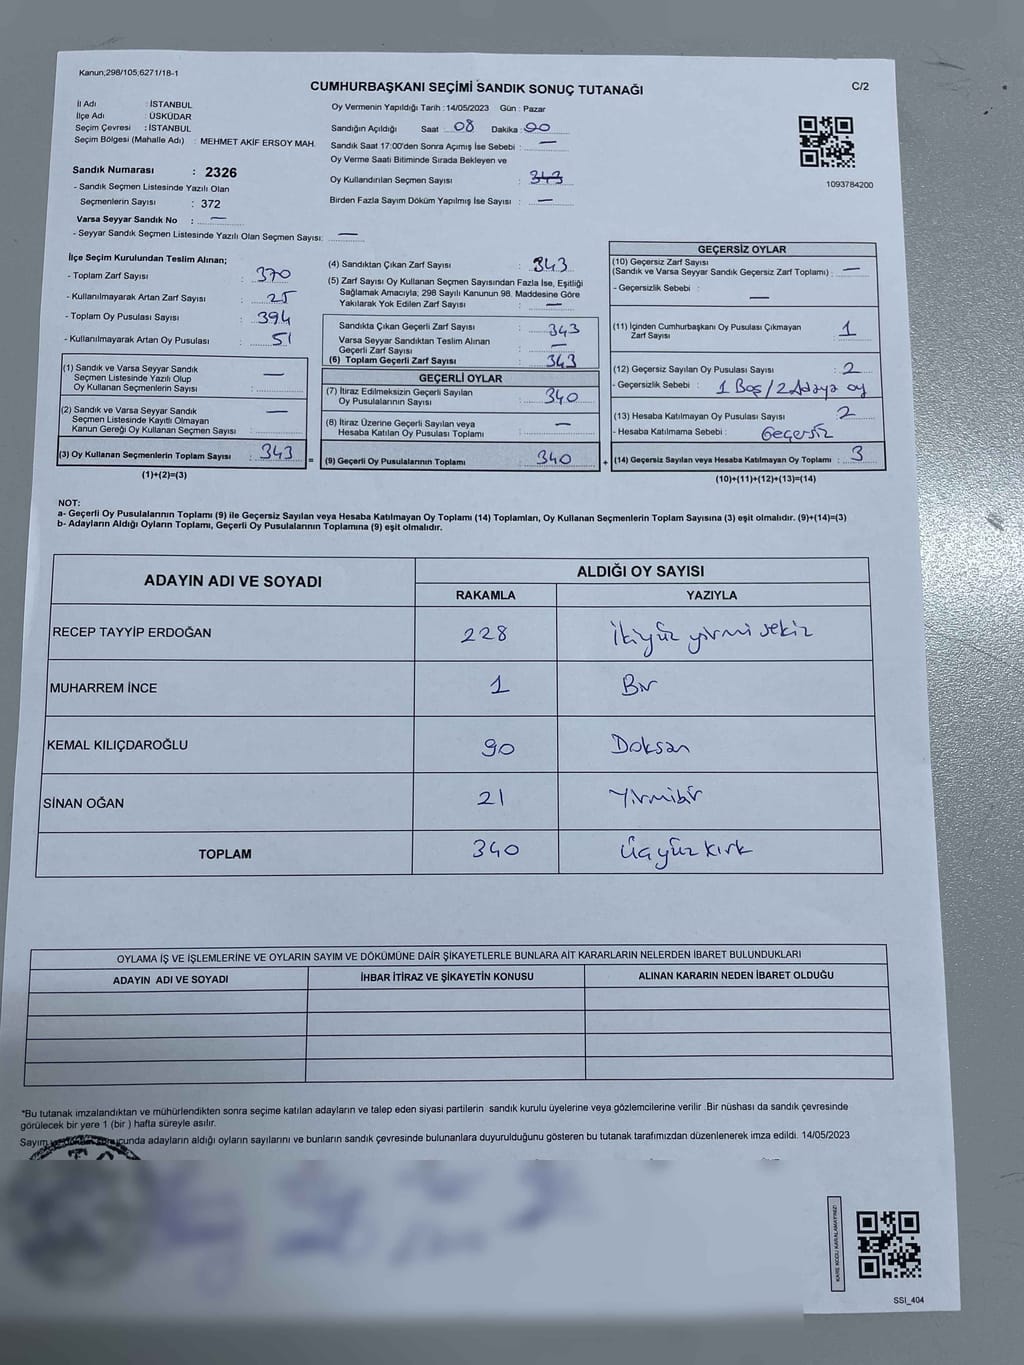 Kanun;298/105;6271/18-1
CUMHURBAŞKANI SEÇİMİ SANDIK SONUÇ TUTANAĞI
C/2
İl Adı : İSTANBUL
İlçe Adı : ÜSKÜDAR
Seçim Çevresi : İSTANBUL
Seçim Bölgesi (Mahalle Adı) : MEHMET AKİF ERSOY MAH.
Sandık Numarası : 2326
- Sandık Seçmen Listesinde Yazılı Olan
Seçmenlerin Sayısı : 372
Varsa Seyyar Sandık No : —
- Seyyar Sandık Seçmen Listesinde Yazılı Olan Seçmen Sayısı: —
Oy Vermenin Yapıldığı Tarih : 14/05/2023 Gün : Pazar
Sandığın Açıldığı Saat 08 Dakika : 00
Sandık Saat 17:00'den Sonra Açımış İse Sebebi : —
Oy Verme Saati Bitiminde Sırada Bekleyen ve
Oy Kullandırılan Seçmen Sayısı : 343
Birden Fazla Sayım Döküm Yapılmış İse Sayısı : —
1093784200
İlçe Seçim Kurulundan Teslim Alınan;
- Toplam Zarf Sayısı : 370
- Kullanılmayarak Artan Zarf Sayısı : 25
- Toplam Oy Pusulası Sayısı : 394
- Kullanılmayarak Artan Oy Pusulası : 51
(1) Sandık ve Varsa Seyyar Sandık
Seçmen Listesinde Yazılı Olup
Oy Kullanan Seçmenlerin Sayısı : —
(2) Sandık ve Varsa Seyyar Sandık
Seçmen Listesinde Kayıtlı Olmayan
Kanun Gereği Oy Kullanan Seçmen Sayısı : —
(3) Oy Kullanan Seçmenlerin Toplam Sayısı : 343
(1)+(2)=(3)
(4) Sandıktan Çıkan Zarf Sayısı : 343
(5) Zarf Sayısı Oy Kullanan Seçmen Sayısından Fazla İse, Eşitliği
Sağlamak Amacıyla; 298 Sayılı Kanunun 98. Maddesine Göre
Yakılarak Yok Edilen Zarf Sayısı : —
Sandıkta Çıkan Geçerli Zarf Sayısı : 343
Varsa Seyyar Sandıktan Teslim Alınan
Geçerli Zarf Sayısı : —
(6) Toplam Geçerli Zarf Sayısı : 343
GEÇERLİ OYLAR
(7) İtiraz Edilmeksizin Geçerli Sayılan
Oy Pusulalarının Sayısı : 340
(8) İtiraz Üzerine Geçerli Sayılan veya
Hesaba Katılan Oy Pusulası Toplamı : —
= (9) Geçerli Oy Pusulalarının Toplamı : 340
GEÇERSİZ OYLAR
(10) Geçersiz Zarf Sayısı
(Sandık ve Varsa Seyyar Sandık Geçersiz Zarf Toplamı) : —
- Geçersizlik Sebebi : —
(11) İçinden Cumhurbaşkanı Oy Pusulası Çıkmayan
Zarf Sayısı : 1
(12) Geçersiz Sayılan Oy Pusulası Sayısı : 2
- Geçersizlik Sebebi : 1 Boş / 2 Adaya oy
(13) Hesaba Katılmayan Oy Pusulası Sayısı : 2
- Hesaba Katılmama Sebebi : Geçersiz
+ (14) Geçersiz Sayılan veya Hesaba Katılmayan Oy Toplamı : 3
(10)+(11)+(12)+(13)=(14)
NOT:
a- Geçerli Oy Pusulalarının Toplamı (9) ile Geçersiz Sayılan veya Hesaba Katılmayan Oy Toplamı (14) Toplamları, Oy Kullanan Seçmenlerin Toplam Sayısına (3) eşit olmalıdır. (9)+(14)=(3)
b- Adayların Aldığı Oyların Toplamı, Geçerli Oy Pusulalarının Toplamına (9) eşit olmalıdır.
ADAYIN ADI VE SOYADI ALDIĞI OY SAYISI
RAKAMLA YAZIYLA
RECEP TAYYİP ERDOĞAN 228 İkiyüz yirmi sekiz
MUHARREM İNCE 1 Bir
KEMAL KILIÇDAROĞLU 90 Doksan
SİNAN OĞAN 21 Yirmibir
TOPLAM 340 Üçyüz kırk
OYLAMA İŞ VE İŞLEMLERİNE VE OYLARIN SAYIM VE DÖKÜMÜNE DAİR ŞİKAYETLERLE BUNLARA AİT KARARLARIN NELERDEN İBARET BULUNDUKLARI
ADAYIN ADI VE SOYADI İHBAR İTİRAZ VE ŞİKAYETİN KONUSU ALINAN KARARIN NEDEN İBARET OLDUĞU
*Bu tutanak imzalandıktan ve mühürlendikten sonra seçime katılan adayların ve talep eden siyasi partilerin sandık kurulu üyelerine veya gözlemcilerine verilir .Bir nüshası da sandık çevresinde
görülecek bir yere 1 (bir ) hafta süreyle asılır.
Sayım ve döküm sonucunda adayların aldığı oyların sayılarını ve bunların sandık çevresinde bulunanlara duyurulduğunu gösteren bu tutanak tarafımızdan düzenlenerek imza edildi. 14/05/2023
KARE KODU KARALAMAYINIZ!
SSI_404